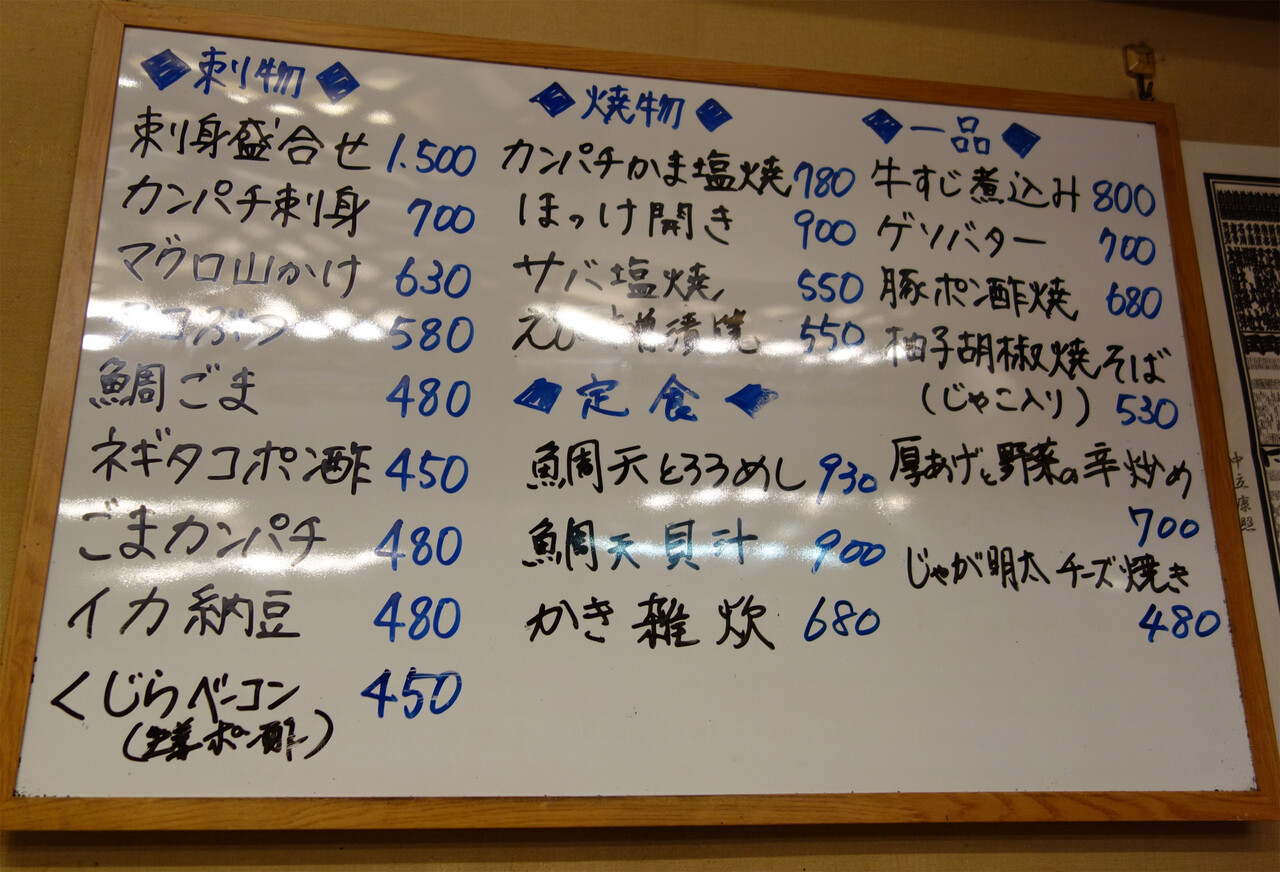 ◆刺物◆
刺身盛合せ 1.500
カンパチ刺身 700
マグロ山かけ 630
タコぶつ 580
鯛ごま 480
ネギタコポン酢 450
ごまカンパチ 480
イカ納豆 480
くじらベーコン 450
(生姜ポン酢)
◆焼物◆
カンパチかま塩焼 780
ほっけ開き 900
サバ塩焼 550
えび 漬焼 550
◆定食◆
鯛天とろろめし 930
鯛天貝汁 900
かき雑炊 680
◆一品◆
牛すじ煮込み 800
ゲソバター 700
豚ポン酢焼 680
柚子胡椒焼そば
(じゃこ入り) 530
厚あげと野菜の辛炒め
700
じゃが明太チーズ焼き
480
中立康照